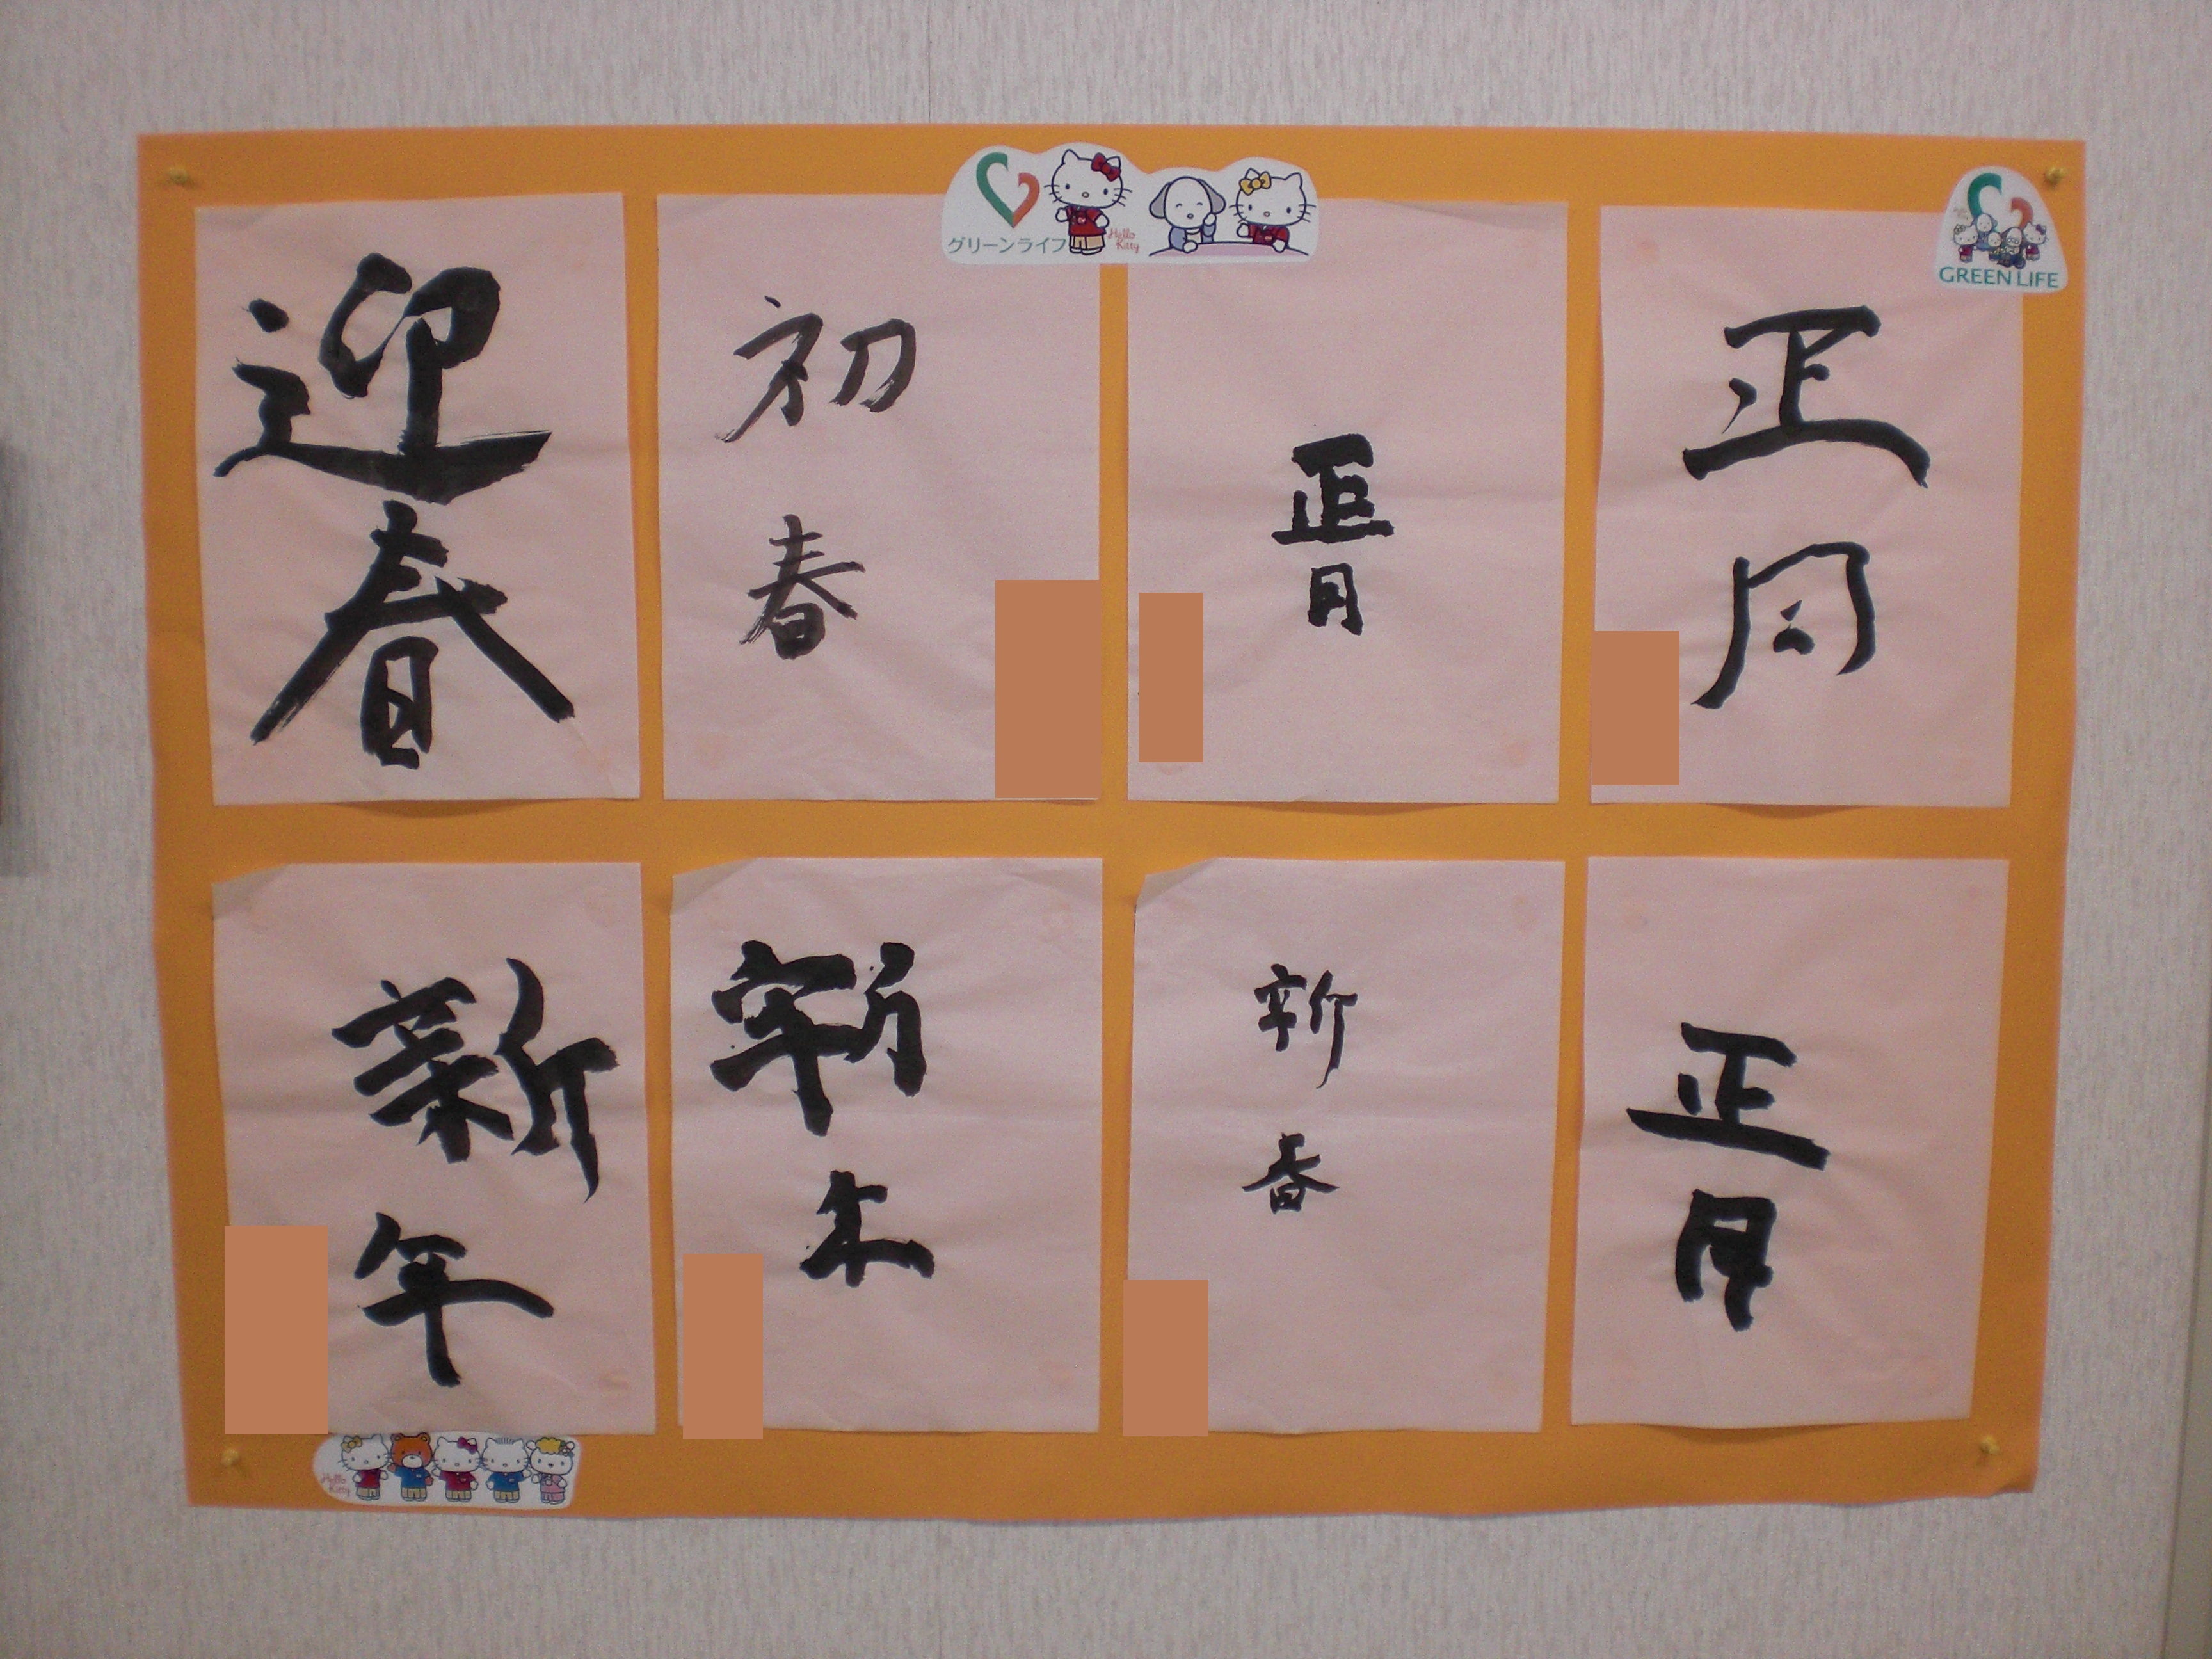 グリーンライフ
Hello Kitty
GREEN LIFE
迎春
初春
正月
正月
新年
新春
正月
Hello Kitty